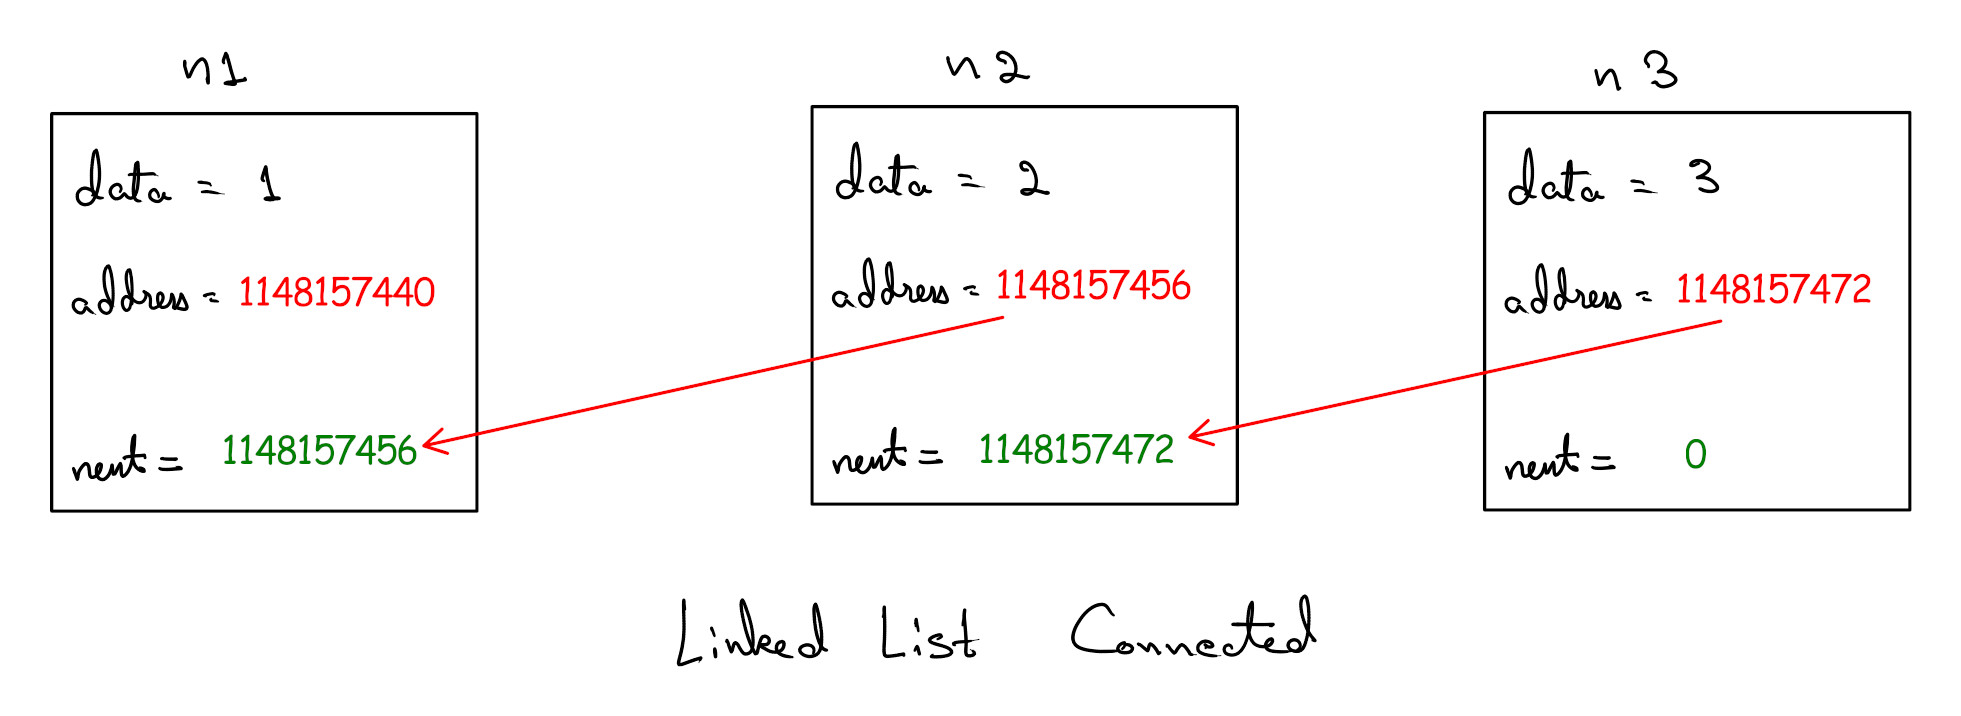 n1
data = 1
address = 1148157440
next = 1148157456
n2
data = 2
address = 1148157456
next = 1148157472
n3
data = 3
address = 1148157472
next = 0
Linked List Connected